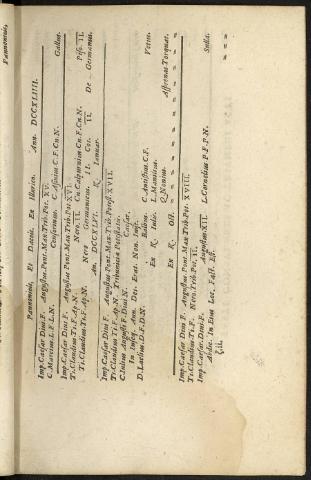 Pannonnieis,
Pannonieis, Et Daceis. Ex Illurico. Ann. DCCXLIIII.
Imp. Caesar Diui F. Augustus Pont. Max. Trib. Pot. XV.
C. Marcius L. F. L. N. Censorinus. C. Asinius C. F. Cn. N. Gallus.
Imp. Caesar Diui F. Augustus Pont. Max. Trib. Pot. XVI.
Ti. Claudius Ti. F. Ap. N. Nero. II. Cn. Calpurnius Cn. F. Cn. N. Piso. II.
Ti. Claudius Ti. F. Ap. N. Nero Germanicus. II. Cos. II. De Germaneis.
An. DCCXLVI. K. Ianuar.
Imp. Caesar Diui F. Augustus Pont. Max. Trib. Potest. XVII.
Ti. Claudius Ti. F. Ap. N. Tribunicia Potestate.
C. Iulius Augusti F. Diui N. Caesar.
In Inseq. Ann. Des. Erat. Non. Init.
D. Laelius D. F. D. N. Balbus. C. Antistius C. F. Vetus.
Ex K. Iulis. L. Monicius.
Q. Nonius. Asprenas Torquat.
Ex K. Oct.
Imp. Caesar Diui F. Augustus Pont. Max. Trib. Pot. XVIII.
Ti. Claudius Ti. F. Nero. Trib. Pot. II.
Imp. Caesar Diui F. Augustus. XII. L. Cornelius P. F. P. N. Sulla.
Abdic. In Eius Loc. Fact. Est.